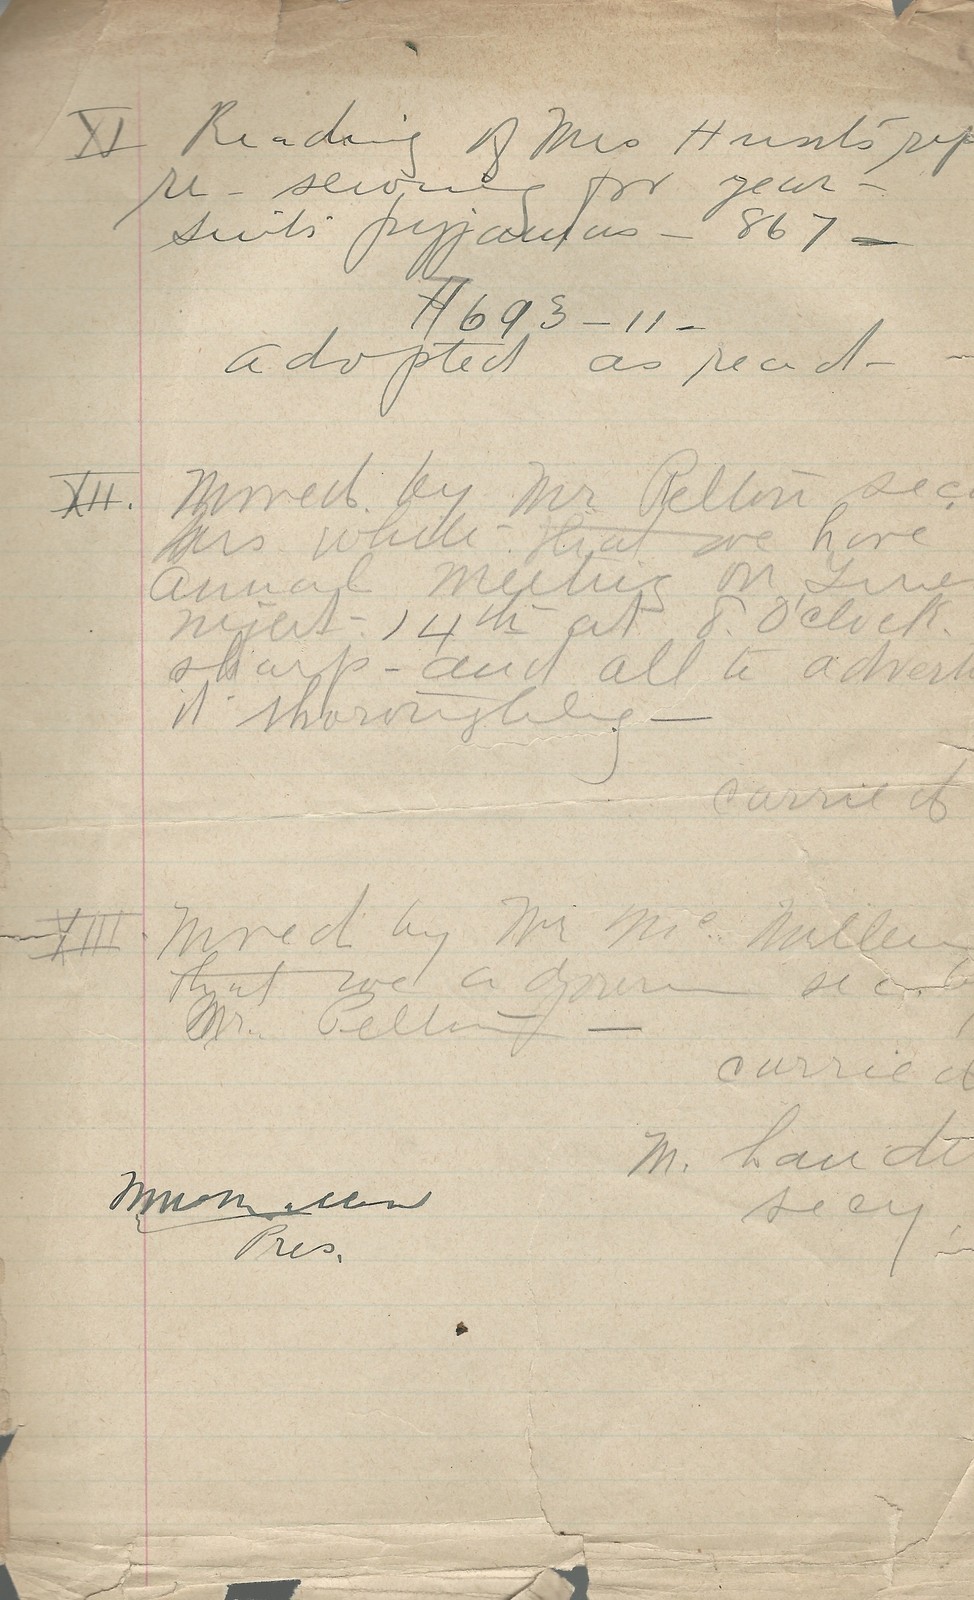 XI Reading of Mrs Hunt's rep
re - sewing for year -
suits pyjamas - 867 -
#693 - 11 -
adopted as read -
XII. Moved by Mr Pelton sec
Mrs White - that we have
annual meeting on Tues
night - 14th at 8. O'clock.
sharp - and all to advert
it thoroughly -
carried
XIII Moved by Mr McMillen
that we adjourn sec. by
Mr. Pelton -
carried
M.
secy.
Pres.